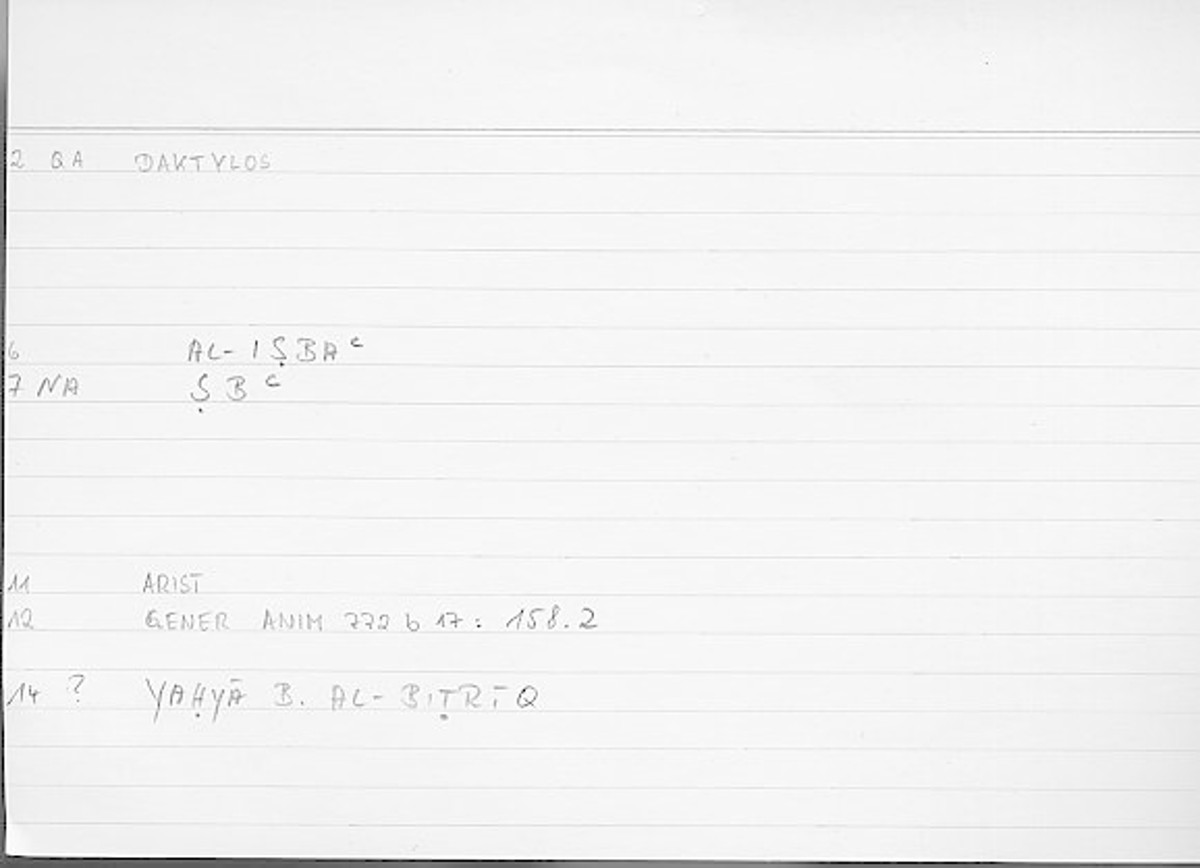 2 QA DAKTYLOS
6 AL-IṢBAᶜ
7 NA ṢBᶜ
11 ARIST
12 GENER ANIM 772 b 17: 158.2
14 ? YAḤYĀ B. AL-BIṬRĪQ